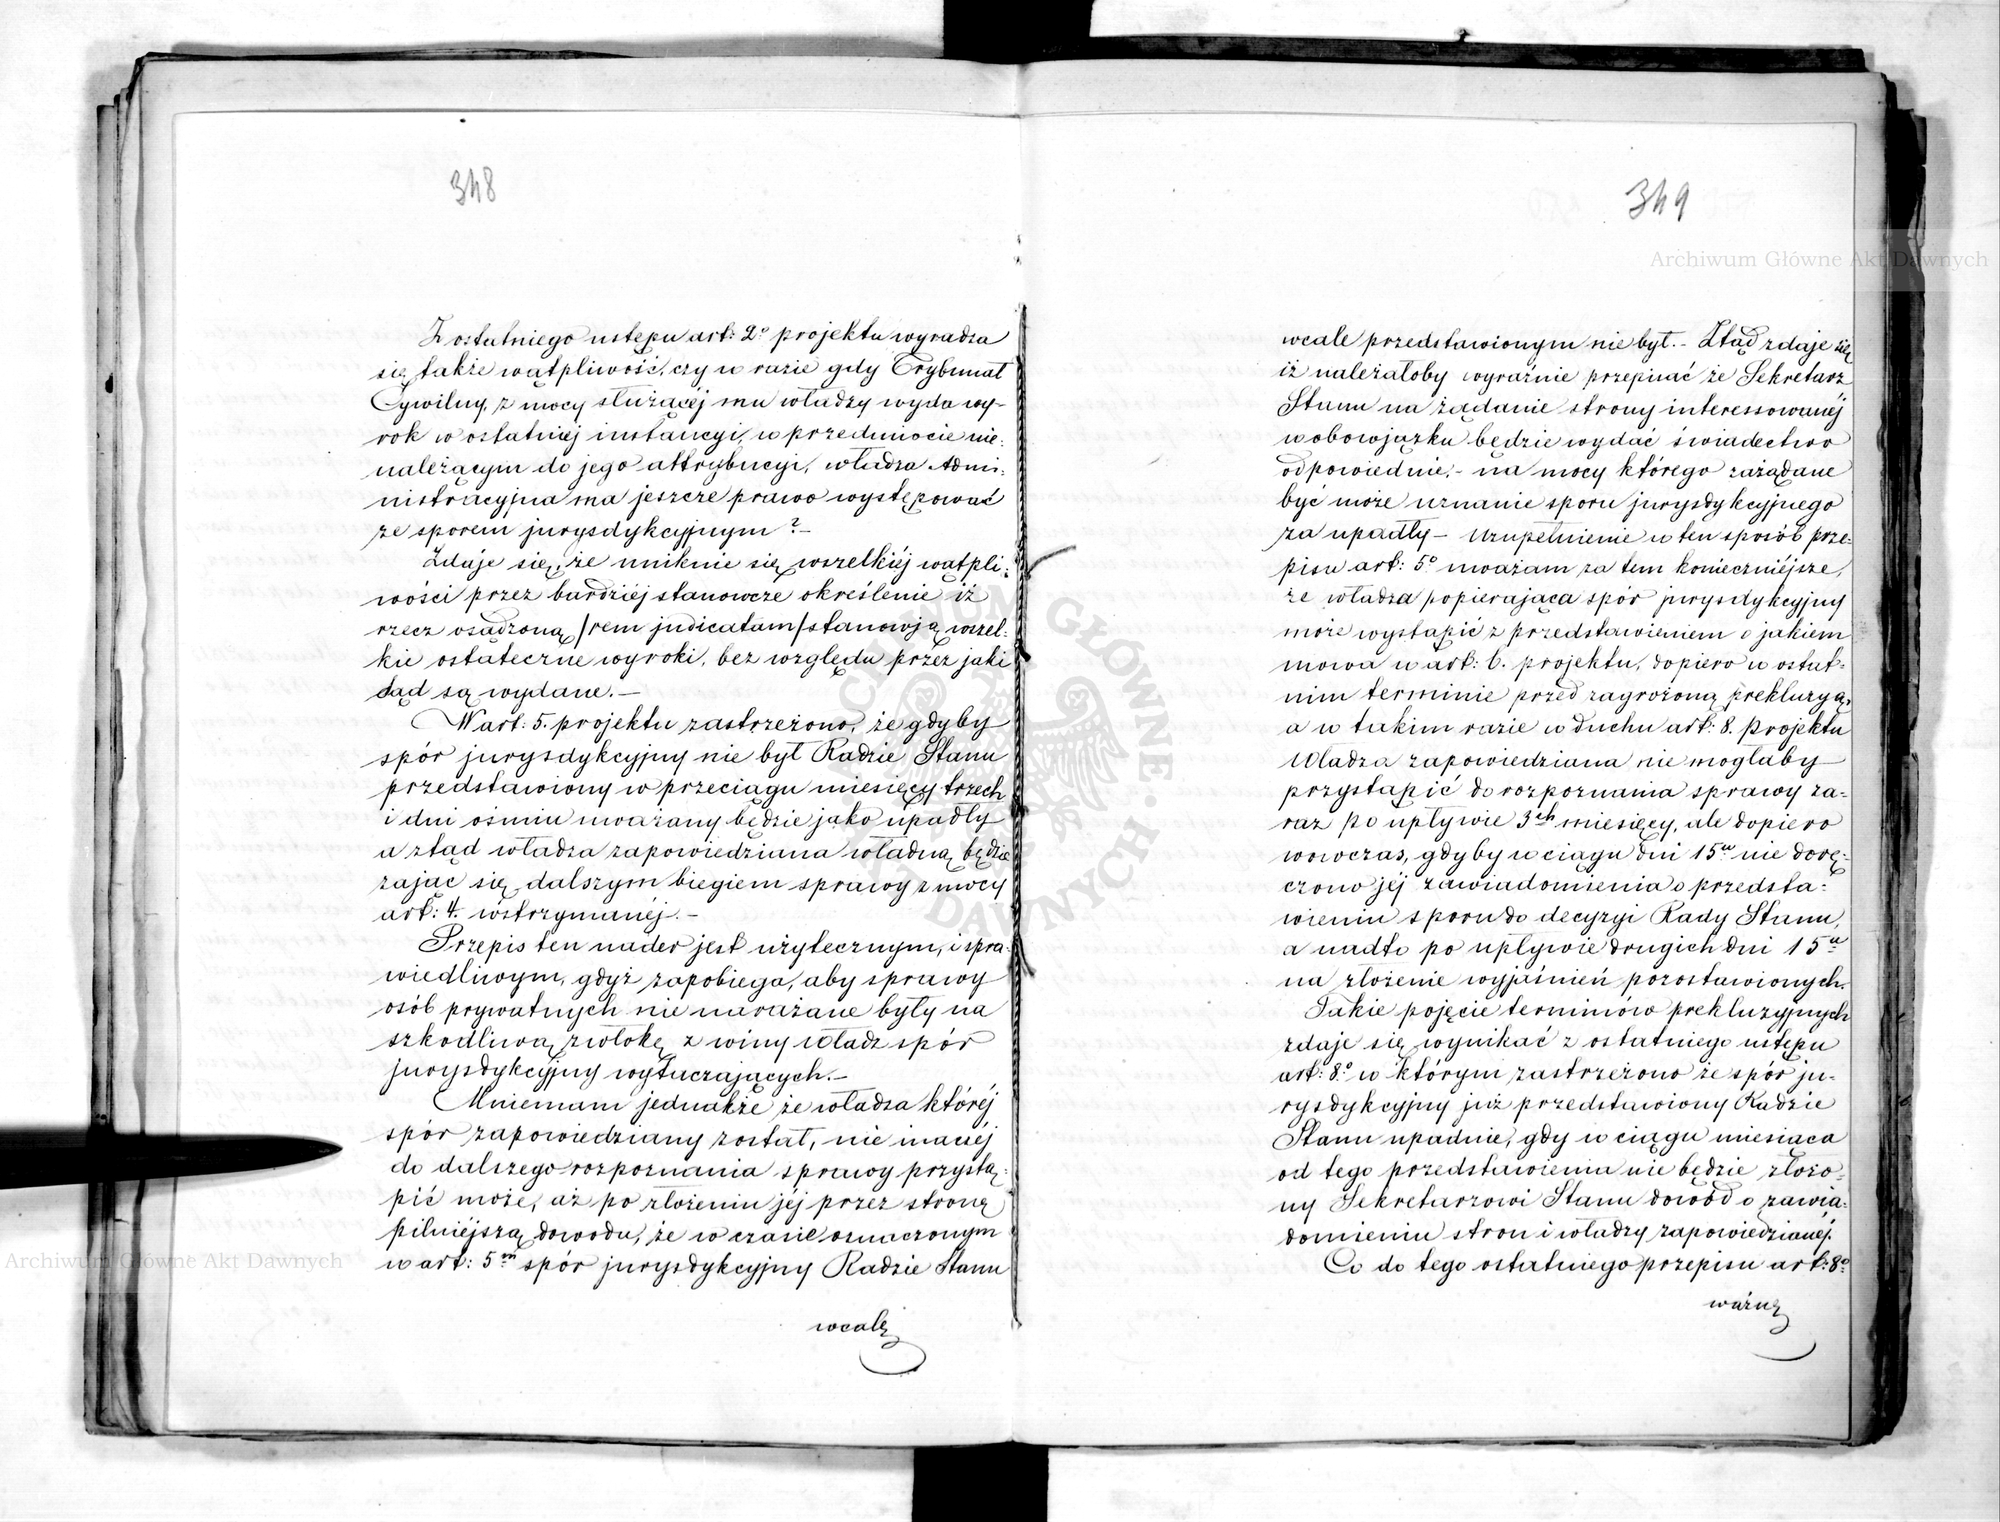 348
Z ostatniego ustępu art: 2º projektu wyradza
się także wątpliwość, czy w razie gdy Trybunał
Cywilny, z mocy służącéj mu władzy wyda wy-
rok w ostatniéj instancyi, w przedmiocie nie-
należącym do jego attrybucyi, władza Admi-
nistracyjna ma jeszcze prawo występować
ze sporem jurysdykcyjnym? —
Zdaje się, że uniknie się wszelkiéj wątpli-
wości przez bardziéj stanowcze określenie iż
rzecz osądzoną /rem judicatam/ stanowią wszel-
kie ostateczne wyroki, bez względu przez jaki
sąd są wydane. —
W art: 5. projektu zastrzeżono, że gdyby
spór jurysdykcyjny nie był Radzie Stanu
przedstawiony w przeciągu miesięcy trzech
i dni ośmiu uważany będzie jako upadły
a ztąd władza zapowiedziana władną będzie
zająć się dalszym biegiem sprawy z mocy
art: 4. wstrzymanéj. —
Przepis ten nader jest użytecznym, i spra-
wiedliwym, gdyż zapobiega, aby sprawy
osób prywatnych nie narażane były na
szkodliwą zwłokę z winy władz spór
jurysdykcyjny wytaczających. —
Mniemam jednakże że władza któréj
spór zapowiedziany został, nie inaczéj
do dalszego rozpoznania sprawy przystą-
pić może, aż po złożeniu jéj przez stronę
pilniéjszą dowodu, że w czasie oznaczonym
w art: 5m spór jurysdykcyjny Radzie Stanu
wcale
349
wcale przedstawionym nie był. — Ztąd zdaje się
iż należałoby wyraźnie przepisać że Sekretarz
Stanu na żądanie strony interessowanéj
w obowiązku będzie wydać świadectwo
odpowiednie, — na mocy którego zażądane
być może uznanie sporu jurysdykcyjnego
za upadły — Uzupełnienie w ten sposób prze-
pisu art: 5º uważam za tem konieczniéjsze,
że władza popierająca spór jurysdykcyjny
może wystąpić z przedstawieniem o jakiem
mowa w art: 6. projektu, dopiero w ostat-
nim terminie przed zagrożoną prekluzyą,
a w takim razie w duchu art: 8. projektu
Władza zapowiedziana nie mogłaby
przystąpić do rozpoznania sprawy za-
raz po upływie 3ch miesięcy, ale dopiero
wówczas, gdyby w ciągu dni 15u nie dorę-
czono jéj zawiadomienia o przedsta-
wieniu sporu do decyzyi Rady Stanu,
a nadto po upływie drugich dni 15u
na złożenie wyjaśnień pozostawionych.
Takie pojęcie terminów prekluzyjnych
zdaje się wynikać z ostatniego ustępu
art: 8º w którym zastrzeżono że spór ju-
rysdykcyjny już przedstawiony Radzie
Stanu upadnie, gdy w ciągu miesiąca
od tego przedstawienia nie będzie złożo-
ny Sekretarzowi Stanu dowód o zawia-
domieniu stron i władzy zapowiedzianéj.
Co do tego ostatniego przepisu art: 8º
ważną
Archiwum Główne Akt Dawnych
Archiwum Główne Akt Dawnych
ARCHIWUM GŁÓWNE AKT DAWNYCH